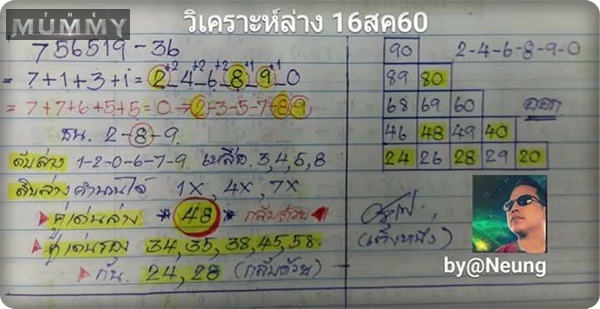 THE
MUMMY
วิเคราะห์ล่าง 16สค60
756519-36
= 7+1+3+1 = 2-4-6-8-9-0
+2 +2 +2
= 7+7+6+5+5 = 0 → 2-3-5-7-8 9
ธน. 2-8-9.
ดับล่าง 1-2-0-6-7-9 เหลือ 3,4,5,8
สิบล่าง คำนวนได้ 1X, 4X, 7X
คู่เด่นล่าง * 48 * กลับด้วย
คู่เด่นรอง 34,35,38,45,58.
กัน. 24,28 (กลับด้วย)
2-4-6-8-9-0
90
89 80
68 69 60
46 48 49 40
24 26 28 29 20
ออก
by@Neung